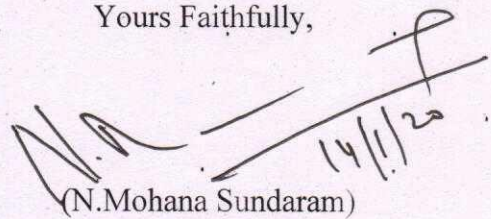 Yours Faithfully,
14/1/20
(N.Mohana Sundaram)